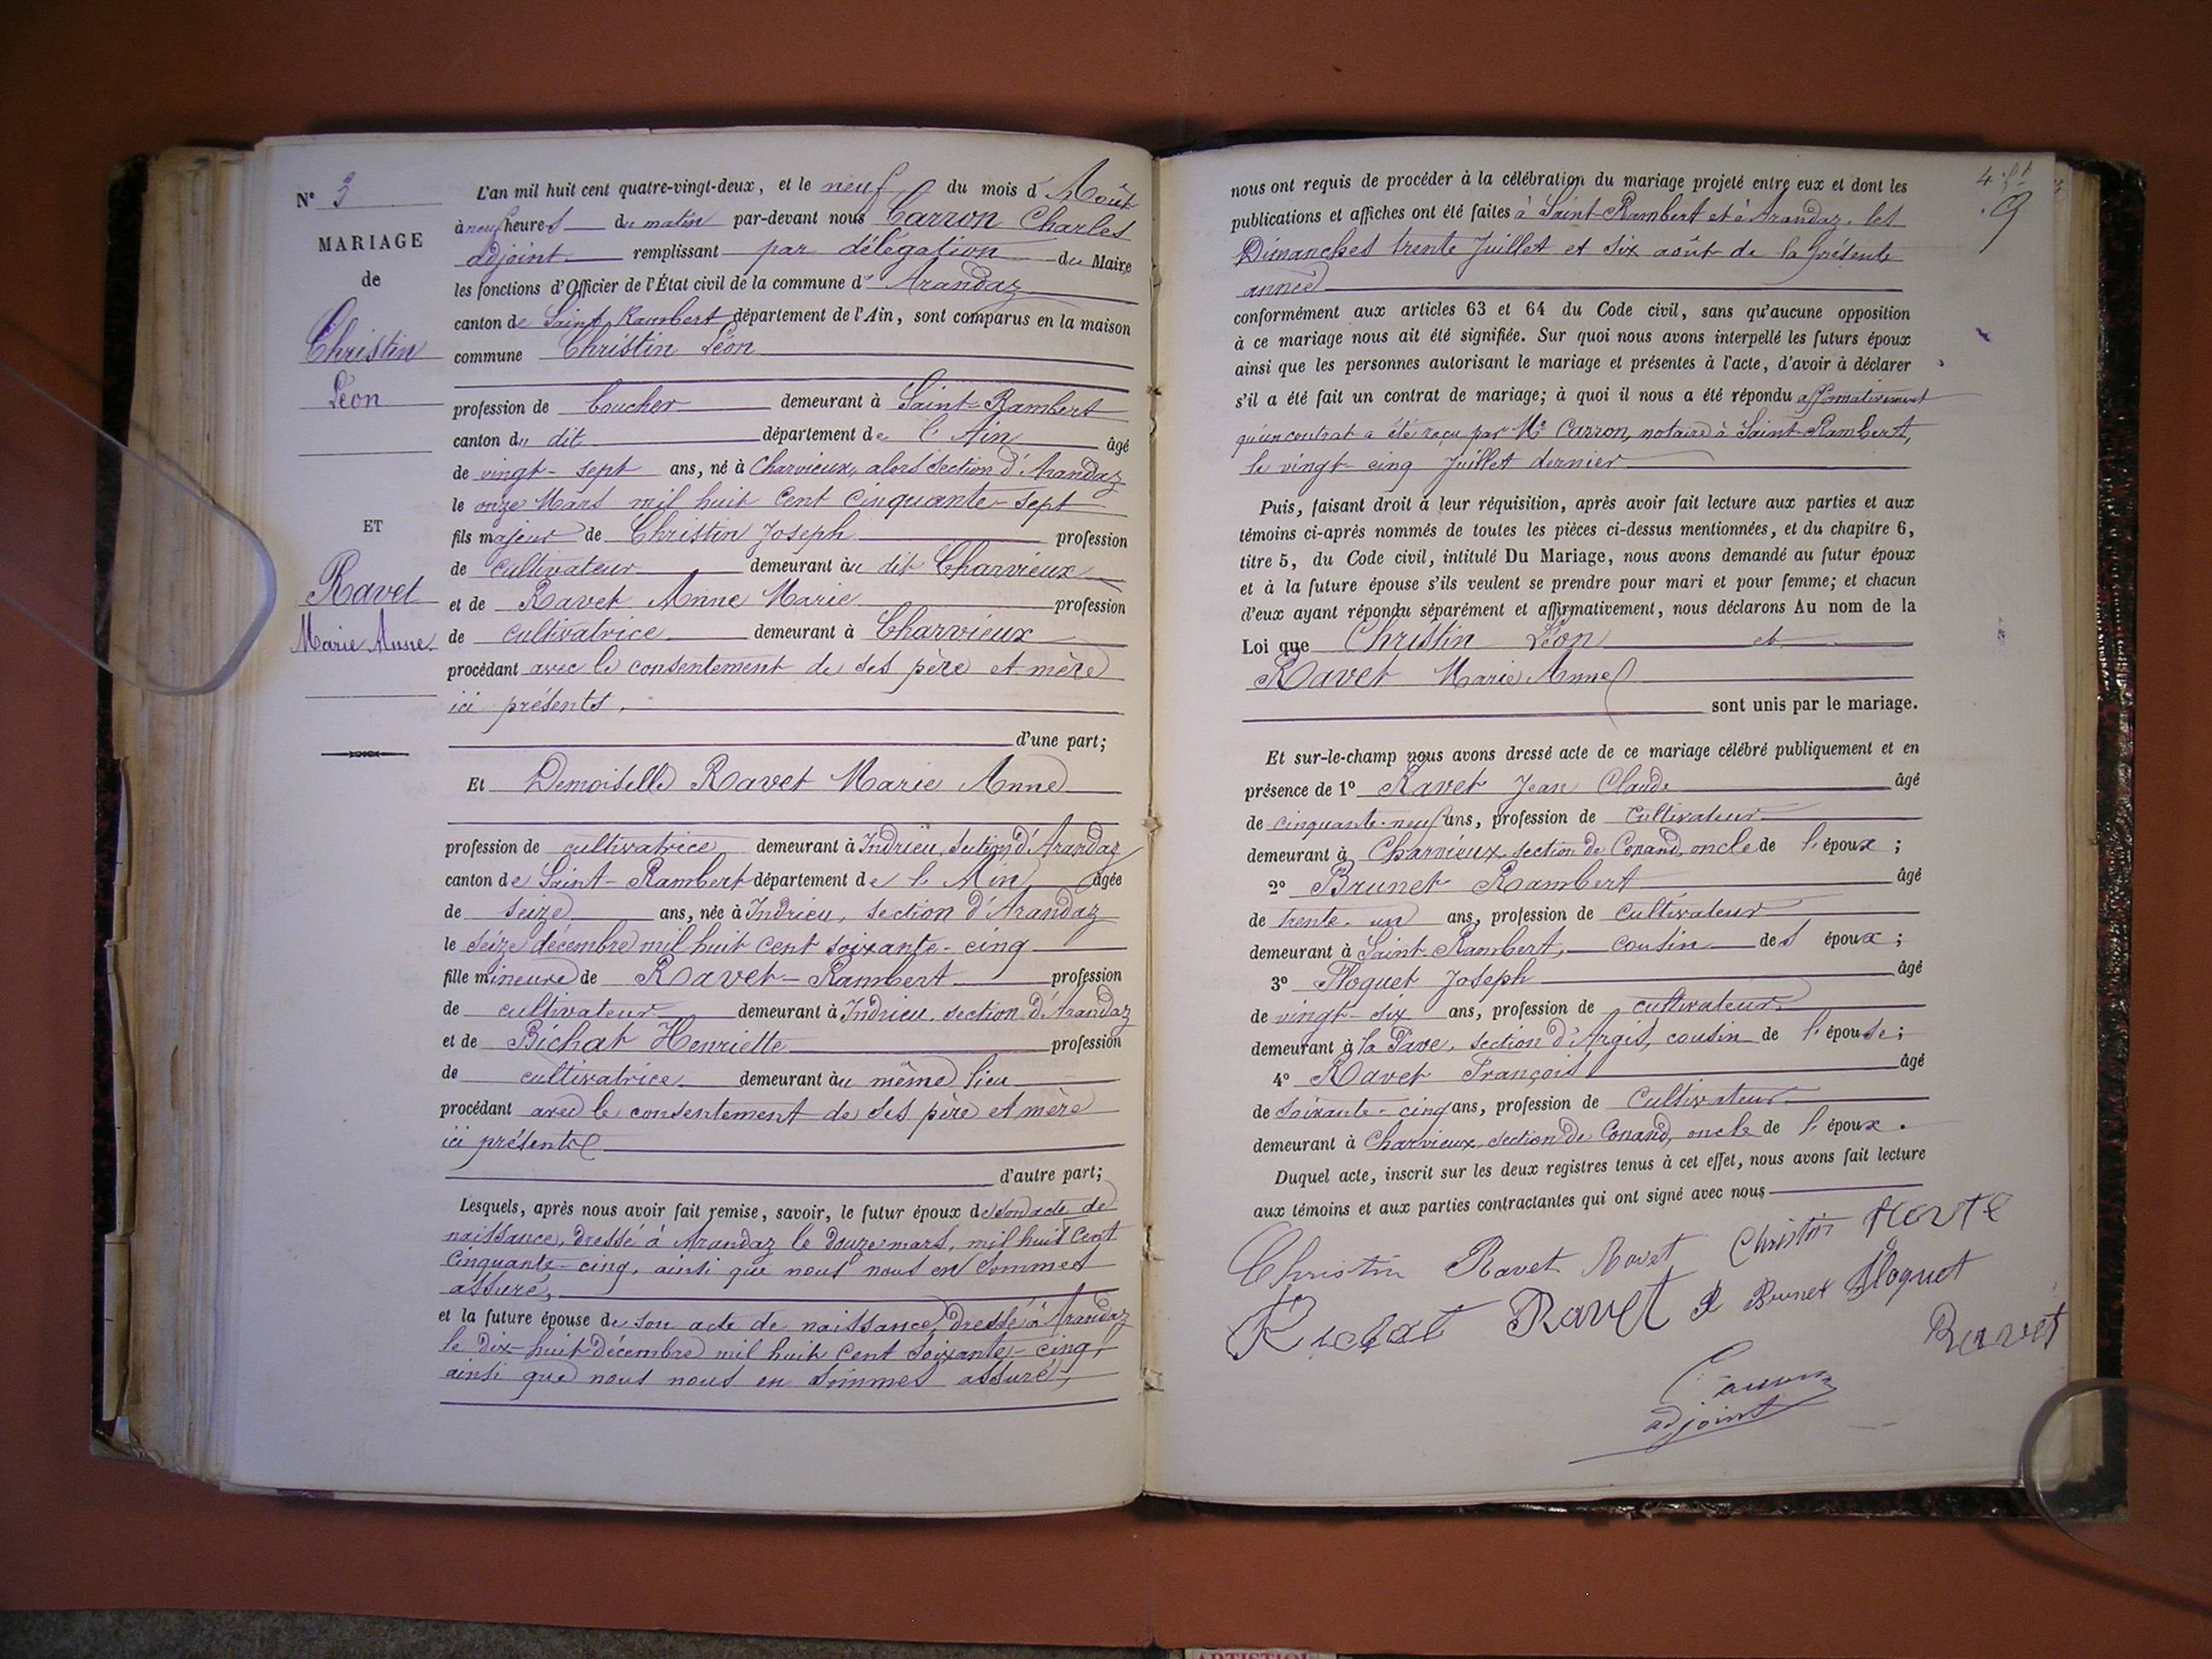 N° 3
MARIAGE
de
Christin
Léon
ET
Ravet
Marie Anne.
L'an mil huit cent quatre-vingt-deux, et le neuf du mois d'Août
à neuf heures du matin par-devant nous Carron Charles
adjoint remplissant par délégation du Maire
les fonctions d'Officier de l'État civil de la commune d' Arandaz
canton de Saint Rambert département de l'Ain, sont comparus en la maison
commune Christin Léon
profession de boucher demeurant à Saint-Rambert
canton du dit département de l'Ain âgé
de vingt-sept ans, né à Charvieux, alors section d'Arandaz
le onze Mars mil huit cent cinquante-sept
fils majeur de Christin Joseph profession
de cultivateur demeurant au dit Charvieux
et de Ravet Anne Marie profession
de cultivatrice demeurant à Charvieux
procédant avec le consentement de ses père et mère
ici présents.
d'une part;
Et Demoiselle Ravet Marie Anne
profession de cultivatrice demeurant à Indrieu, section d'Arandaz
canton de Saint-Rambert département de l'Ain âgée
de seize ans, née à Indrieu, section d'Arandaz
le seize décembre mil huit cent soixante-cinq
fille mineure de Ravet-Rambert profession
de cultivateur demeurant à Indrieu, section d'Arandaz
et de Bichat Henriette profession
de cultivatrice demeurant au même lieu
procédant avec le consentement de ses père et mère
ici présents
d'autre part;
Lesquels, après nous avoir fait remise, savoir, le futur époux de son acte de
naissance, dressé à Arandaz le douze mars, mil huit cent
cinquante-cinq, ainsi que nous nous en sommes
assuré,
et la future épouse de son acte de naissance, dressé à Arandaz
le dix-huit décembre mil huit cent soixante-cinq,
ainsi que nous nous en sommes assuré,
4
9
nous ont requis de procéder à la célébration du mariage projeté entre eux et dont les
publications et affiches ont été faites à Saint-Rambert et à Arandaz, les
Dimanches trente Juillet et six août de la présente
année
conformément aux articles 63 et 64 du Code civil, sans qu'aucune opposition
à ce mariage nous ait été signifiée. Sur quoi nous avons interpellé les futurs époux
ainsi que les personnes autorisant le mariage et présentes à l'acte, d'avoir à déclarer
s'il a été fait un contrat de mariage; à quoi il nous a été répondu affirmativement
qu'un contrat a été reçu par Me Carron, notaire à Saint-Rambert,
le vingt-cinq Juillet dernier
Puis, faisant droit à leur réquisition, après avoir fait lecture aux parties et aux
témoins ci-après nommés de toutes les pièces ci-dessus mentionnées, et du chapitre 6,
titre 5, du Code civil, intitulé Du Mariage, nous avons demandé au futur époux
et à la future épouse s'ils veulent se prendre pour mari et pour femme; et chacun
d'eux ayant répondu séparément et affirmativement, nous déclarons Au nom de la
Loi que Christin Léon et
Ravet Marie Anne
sont unis par le mariage.
Et sur-le-champ nous avons dressé acte de ce mariage célébré publiquement et en
présence de 1° Ravet Jean Claude âgé
de cinquante-neuf ans, profession de cultivateur
demeurant à Charvieux, section de Conand, oncle de l'époux;
2° Brunet Rambert âgé
de trente-un ans, profession de cultivateur
demeurant à Saint-Rambert, cousin des époux;
3° Floquet Joseph âgé
de vingt-six ans, profession de cultivateur
demeurant à la Pave, section d'Argis, cousin de l'épouse;
4° Ravet François âgé
de soixante-cinq ans, profession de Cultivateur
demeurant à Charvieux, section de Conand, oncle de l'époux.
Duquel acte, inscrit sur les deux registres tenus à cet effet, nous avons fait lecture
aux témoins et aux parties contractantes qui ont signé avec nous
Christin Ravet Ravet Christin
Ravet R Brunet Floquet
Ravet
Carron
adjoint